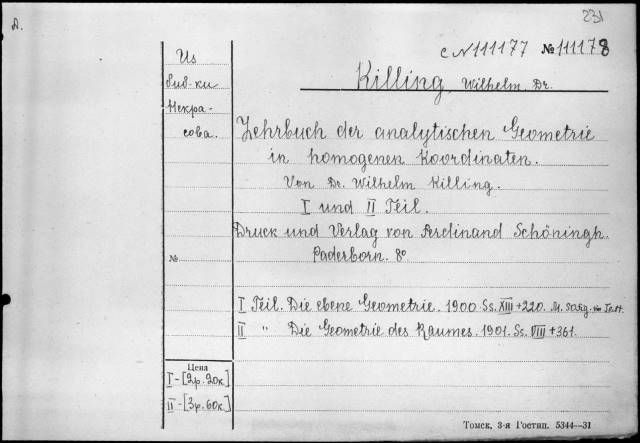 231
A.
с № 111177 № 111178
Killing, Wilhelm, Dr.
Из
биб-ки
Некра-
сова.
Lehrbuch der analytischen Geometrie
in homogenen Koordinaten.
Von Dr. Wilhelm Killing.
I und II Teil.
Druck und Verlag von Ferdinand Schöningh.
Paderborn. 8°
№
I Teil. Die ebene Geometrie. 1900. Ss. XIII + 220. M. 50 Fig. im Text.
II " Die Geometrie des Raumes. 1901. Ss. VIII + 361.
Цена
I - [2р. 20к.]
II - [3р. 60к.]
Томск, 3-я Гостип. 5344—31